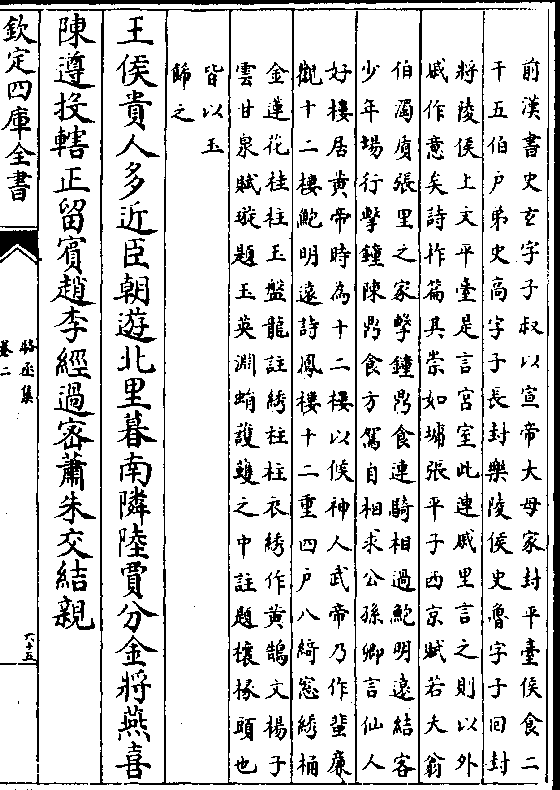 前漢書史玄字子叔以宣帝大母家封平臺侯食二
千五伯户弟史高字子長封樂陵侯史魯字子回封
將陵侯上文平臺是言宫室此連戚里言之則以外
戚作意矣詩柞篇其崇如墉張平子西京賦若夫翁
伯濁質張里之家擊鐘鼎食連騎相過鮑明逺結客
少年場行擊鐘陳鼎食方駕自相求公孫卿言仙人
好樓居黄帝時為十二樓以候神人武帝乃作蜚廉
觀十二樓鮑明逺詩鳳樓十二重四户八綺窓綉桷
金蓮花桂柱玉盤龍註綉柱柱衣綉作黄鵠文楊子
雲甘泉賦琁題玉英淵蛸護蠖之中註題榱椽頭也
皆以玉
飾之
王侯貴人多近臣朝遊北里暮南隣陸賈分金將燕喜
陳遵投轄正留賓趙李經過宻蕭朱交結親
欽定四庫全書
駱丞集
卷二
六十五